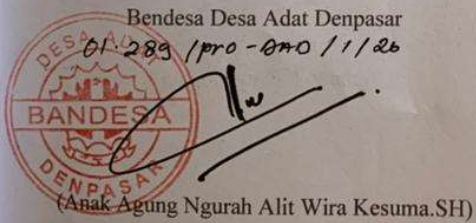 Bendesa Desa Adat Denpasar
01.289 /pro-DAD /1/26
DESA ADAT
BANDESA
DENPASAR
(Anak Agung Ngurah Alit Wira Kesuma.SH)